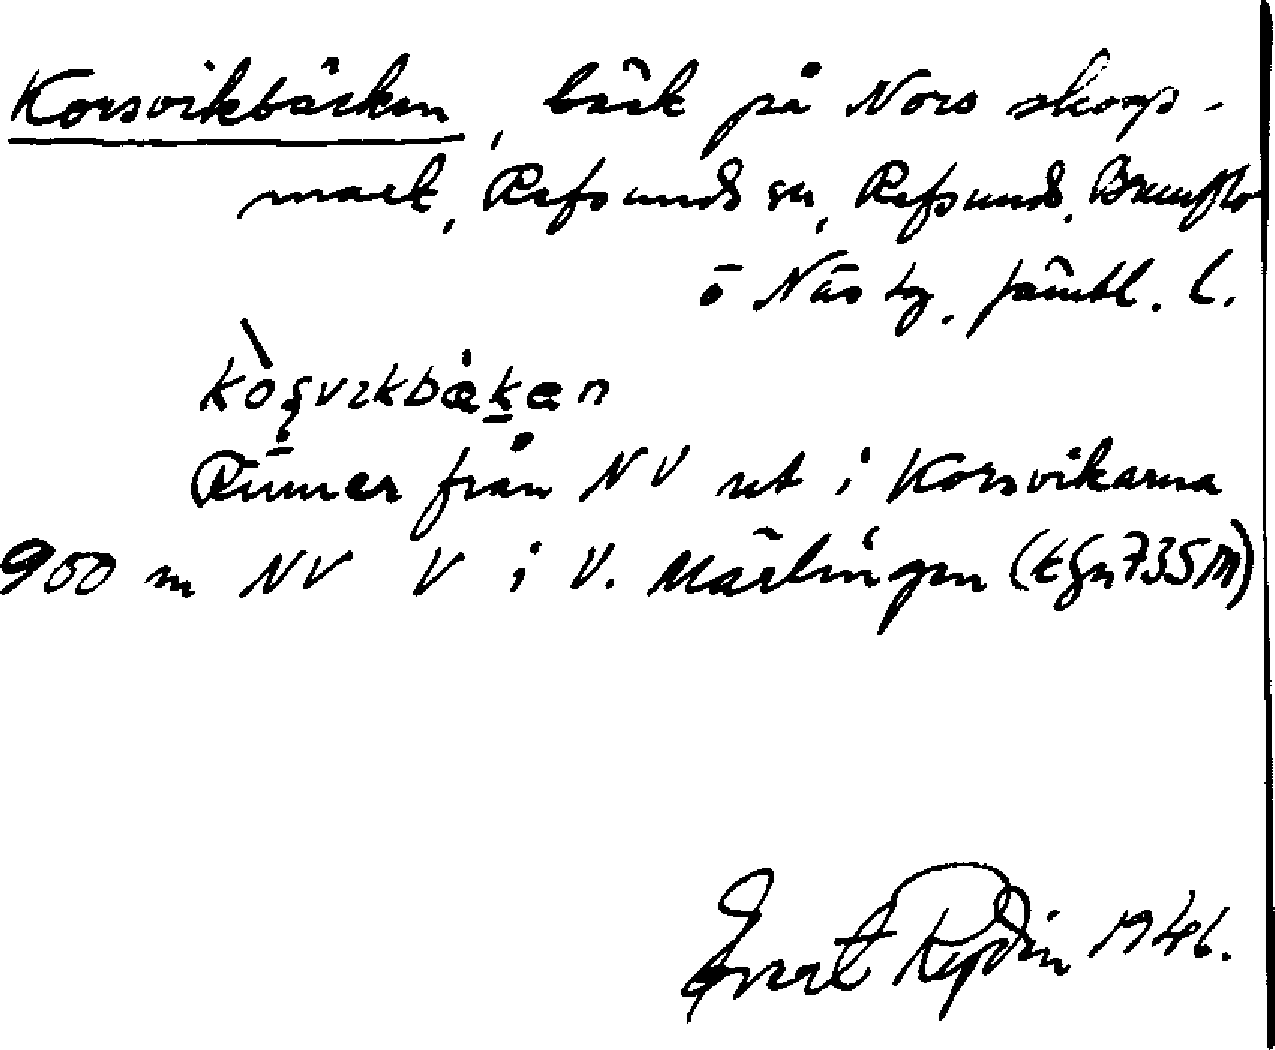 Korsvikbäcken, bäck på Nors skogs-
mark, Refsunds sn, Refsunds, Brunflo
o Näs tg. Jämtl. l.
Rinner från NV ut i Korsvikarna
900 m NV V i V. Märlingen (735 M)
Evert Rydin 1946.